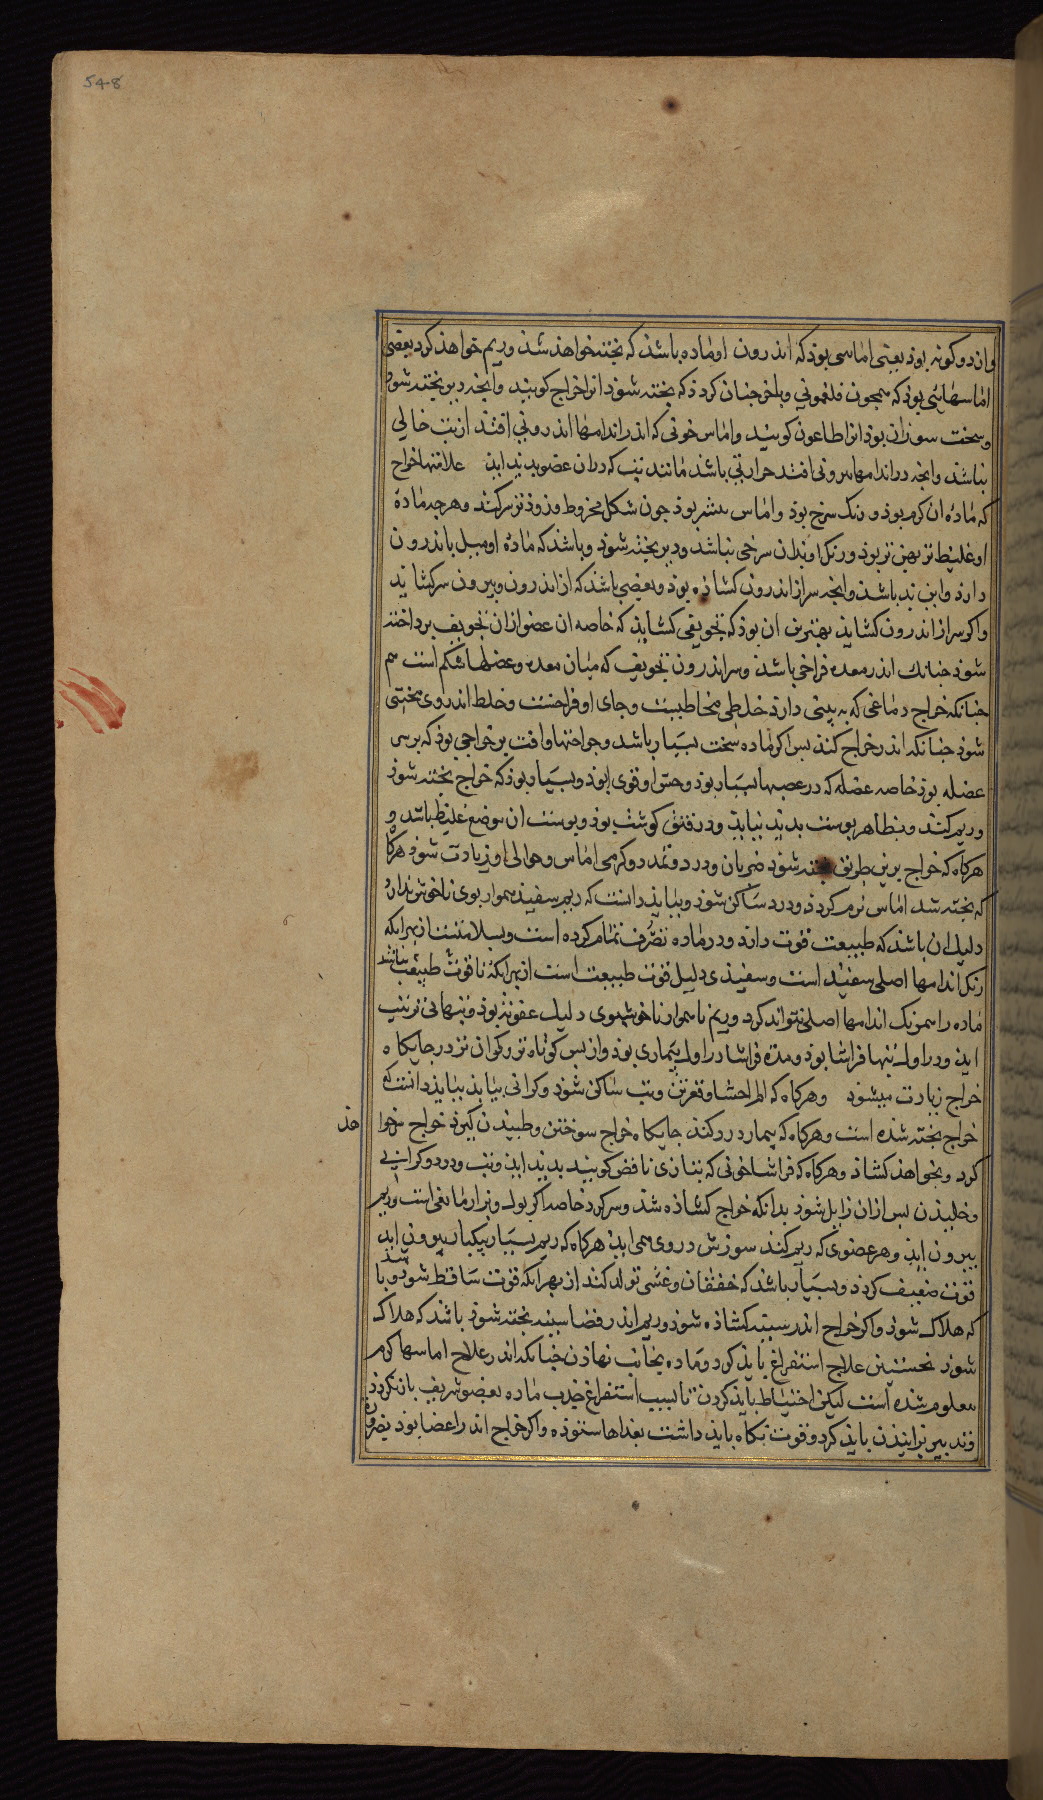 548
وان دو کونه بوذ بعضی اماسی بوذ که اندرون او ماده باشذ که پخته خواهذ شذ و ریم خواهذ کرد بعضی
اماسهائی بوذ که همجون فلغمونی و باخر جنان کردذ که پخته شوذ انرا خراج کویند وانجه دیر پخته شوذ
و سخت سوزان بوذ انرا طاعون کویند و اماس خونی که اندر اندامها اندرونی افتذ از تب خالی
نباشذ وانجه در اندامها بیرونی افتذ حرارتی باشذ مانند تب که در ان عضو بدید ایذ علامتها خراج
که ماده ان کرم بوذ و رنک سرخ بوذ و اماس بیشتر بوذ جون شکل مخروط و زوذتر سر کند و هرجه ماده
او غلیظ تر بهن تر بوذ و رنک او بدان سرخی نباشد و دیر پخته شوذ و باشذ که ماده او میل باندرون
دارذ و این بد باشذ وانجه سر از اندرون کشاذه بوذ و بعضی باشذ که از اندرون و بیرون سر کشاید
واکر سر از اندرون کشاید بهترین ان بوذ که تجویفی کشاید که خاصه ان عضو ازان تجویف برداخته
شوذ جنانک اندر معده فراخی باشذ و سر اندرون تجویف که میان معده و عضلها شکم است هم
جنانکه خراج دماغی که به بینی دارذ خلطی مخاطیست و جای او فراخست و خلط اندر وی مختبی
شوذ جنانکه اندر خراج کنذ بس اکر ماده سخت بسیار باشد و جراحتها وافت بر خراجی بوذ که بر سر
عضله بوذ خاصه عضله که در عصبها بسیار بوذ و حس او قوی بوذ و بسیار بوذ که خراج پخته شوذ
و ریم کند و بظاهر پوست بدید نیاید ودر رفتن کوشت بوذ و پوست ان موضع غلیظ باشد و
هرکاه که خراج برین طریق پخته شوذ ضربان و درد و تمدد و کرمی اماس و حوالی او زیادت شوذ هرکاه
که پخته شد اماس نرم کردذ و درد ساکن شوذ و بباید دانست که ریم سفیذ هموار بوی ناخوش ندارذ
دلیل ان باشذ که طبیعت قوت دارد و در ماده تصرف تمام کرده است و بسلامتست از بهرانکه
رنک اندامها اصلی سفیذ است و سفیذی دلیل قوت طبیعت است از بهرانکه تا قوت طبیعت نباشذ
ماده را همرنک اندامها اصلی نتواند کرد و ریم ناهموار ناخوش بوی دلیل عفونت بوذ و تبهائی نوبتی
ایذ و در اول تبها فراشا بوذ و مده فراشا در اول بیماری بوذ و از بس کوتاه تر و کران تر در جایکاه
خراج زیادت میشود و هرکاه که الم احشا و قعرتن و تب ساکن شوذ و کرانی بیایذ بباید دانست که
خراج پخته شده است و هرکاه که بیمار درد کند جایکاه خراج سوختن و طبیذن کیرذ خراج سر خوا هذ
کرد و بخواهذ کشاذ و هرکاه که فراشا خونی که بتازی نافض کویند بدید اید و تب و درد و کرانی
و خلیدن بس ازان زایل شوذ بدانکه خراج کشاذه شذ و سر کرد خاصه اکر بول و براز ما بقی است و ریم
بیرون ایذ و هر عضوی که ریم کند سوزش در وی همی ایذ هرکاه که ریم بسیار بیکبار بیرون ایذ
قوت ضعیف کردد و بسیار باشذ که خفقان و غشی تولد کند از بهرانکه قوت ساقط شوذ و باشذ
که هلاک شوذ واکر خراج اندر سینه کشاذه شوذ و ریم اندر فضا سینه پخته شوذ باشذ که هلاک
شوذ نخستین علاج استفراغ باید کرد و ماده بجانب نهاذن جنانکه اندر علاج اماسها کرم
معلوم شده است لیکن احتیاط باید کردن تا بسبب استفراغ جذب ماده بعضو شریف باز نکردذ
و تدبیر ترانیذن باید کرد و قوت نکاه باید داشت بغذاها ستوذه واکر خراج اندر اعضا بوذ بضرورة